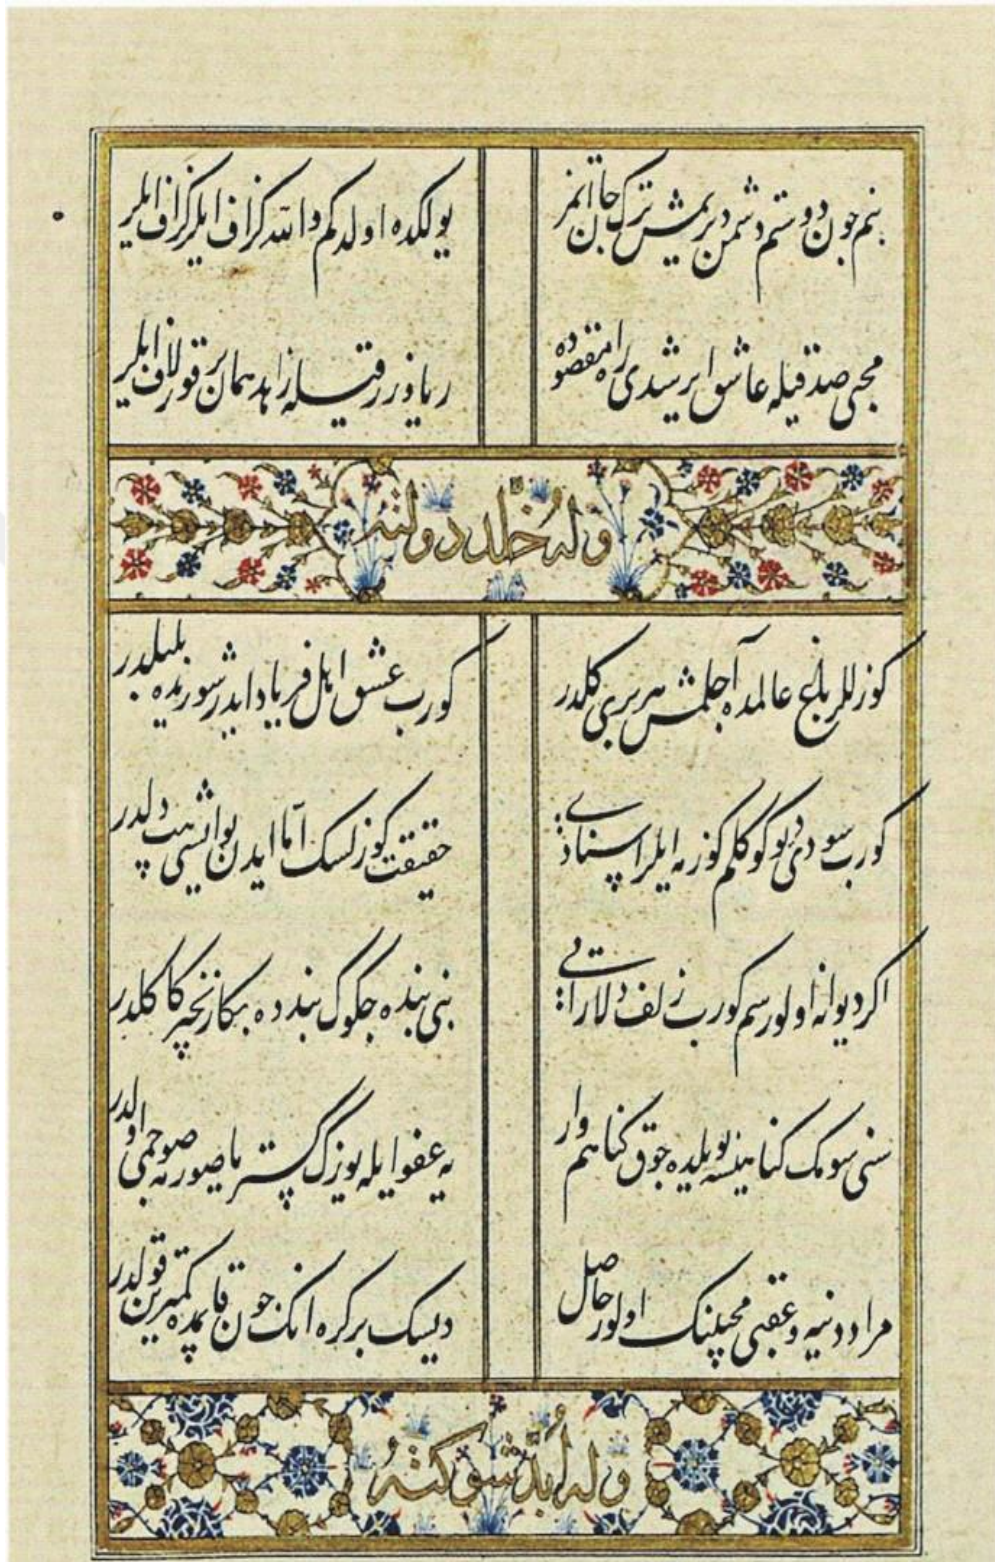 بنم چون دوستم دشمن دیریمش ترک جان اتمز
یولکده اولدکم والله کزاف ایلر کزاف ایلر
محبی صدقیله عاشق ایرشدی راه مقصوده
ریا و زرقیله زاهد همان بر قور لاف ایلر
وله خلد دولته
کوزللر باغ عالمده آچلمش هر بری کلدر
کورب عشق اهل فریاد ایدر شوریده بلبلدر
کورب سودی بو کوکلم کوزمه ایلر
حقیقت کوزلسک اما ایدن بو ایشی هب دلدر
اکر دیوانه اولورسم کورب زلف دلارایی
بنی بنده چکوک بنده بکا زنجیر کاکلدر
سنی سومک کناهیسه بویلده چوق کناهم وار
یه عفو ایله یوزک کستر یا صورمه صوجمی اولدر
مراد دنیه و عقبی محبینک اولور حاصل
دیسک بر کره انک چون قاپمده کمترین قولدر
وله ابد شوکته